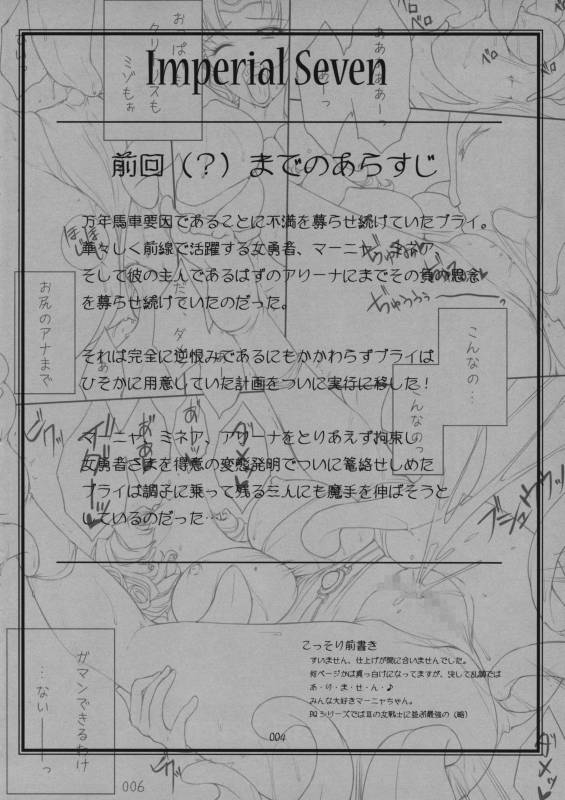 Imperial Seven
前回（？）までのあらすじ
万年馬車要因であることに不満を募らせ続けていたブライ。
華々しく前線で活躍する女勇者、マーニャ
そして彼の主人であるはずのアリーナにまでその負の思念
を募らせ続けていたのだった。
それは完全に逆恨みであるにもかかわらずブライは
ひそかに用意していた計画をついに実行に移した！
マーニャ、ミネア、アリーナをとりあえず拘束し
女勇者さまを得意の変態発明でついに篭絡せしめた
ブライは調子に乗って残る三人にも魔手を伸ばそうと
しているのだった…
こっそり前書き
すいません、仕上げが間に合いませんでした。
何ページかは真っ白けになってますが、決して乱調では
あ・り・ま・せ・ん・♪
みんな大好きマーニャちゃん。
DQシリーズではⅢの女戦士に並ぶ最強の（略）
004
お尻のアナまで
こんなの…
こんなのっ
ガマンできるわけ
…ないーーっ
006